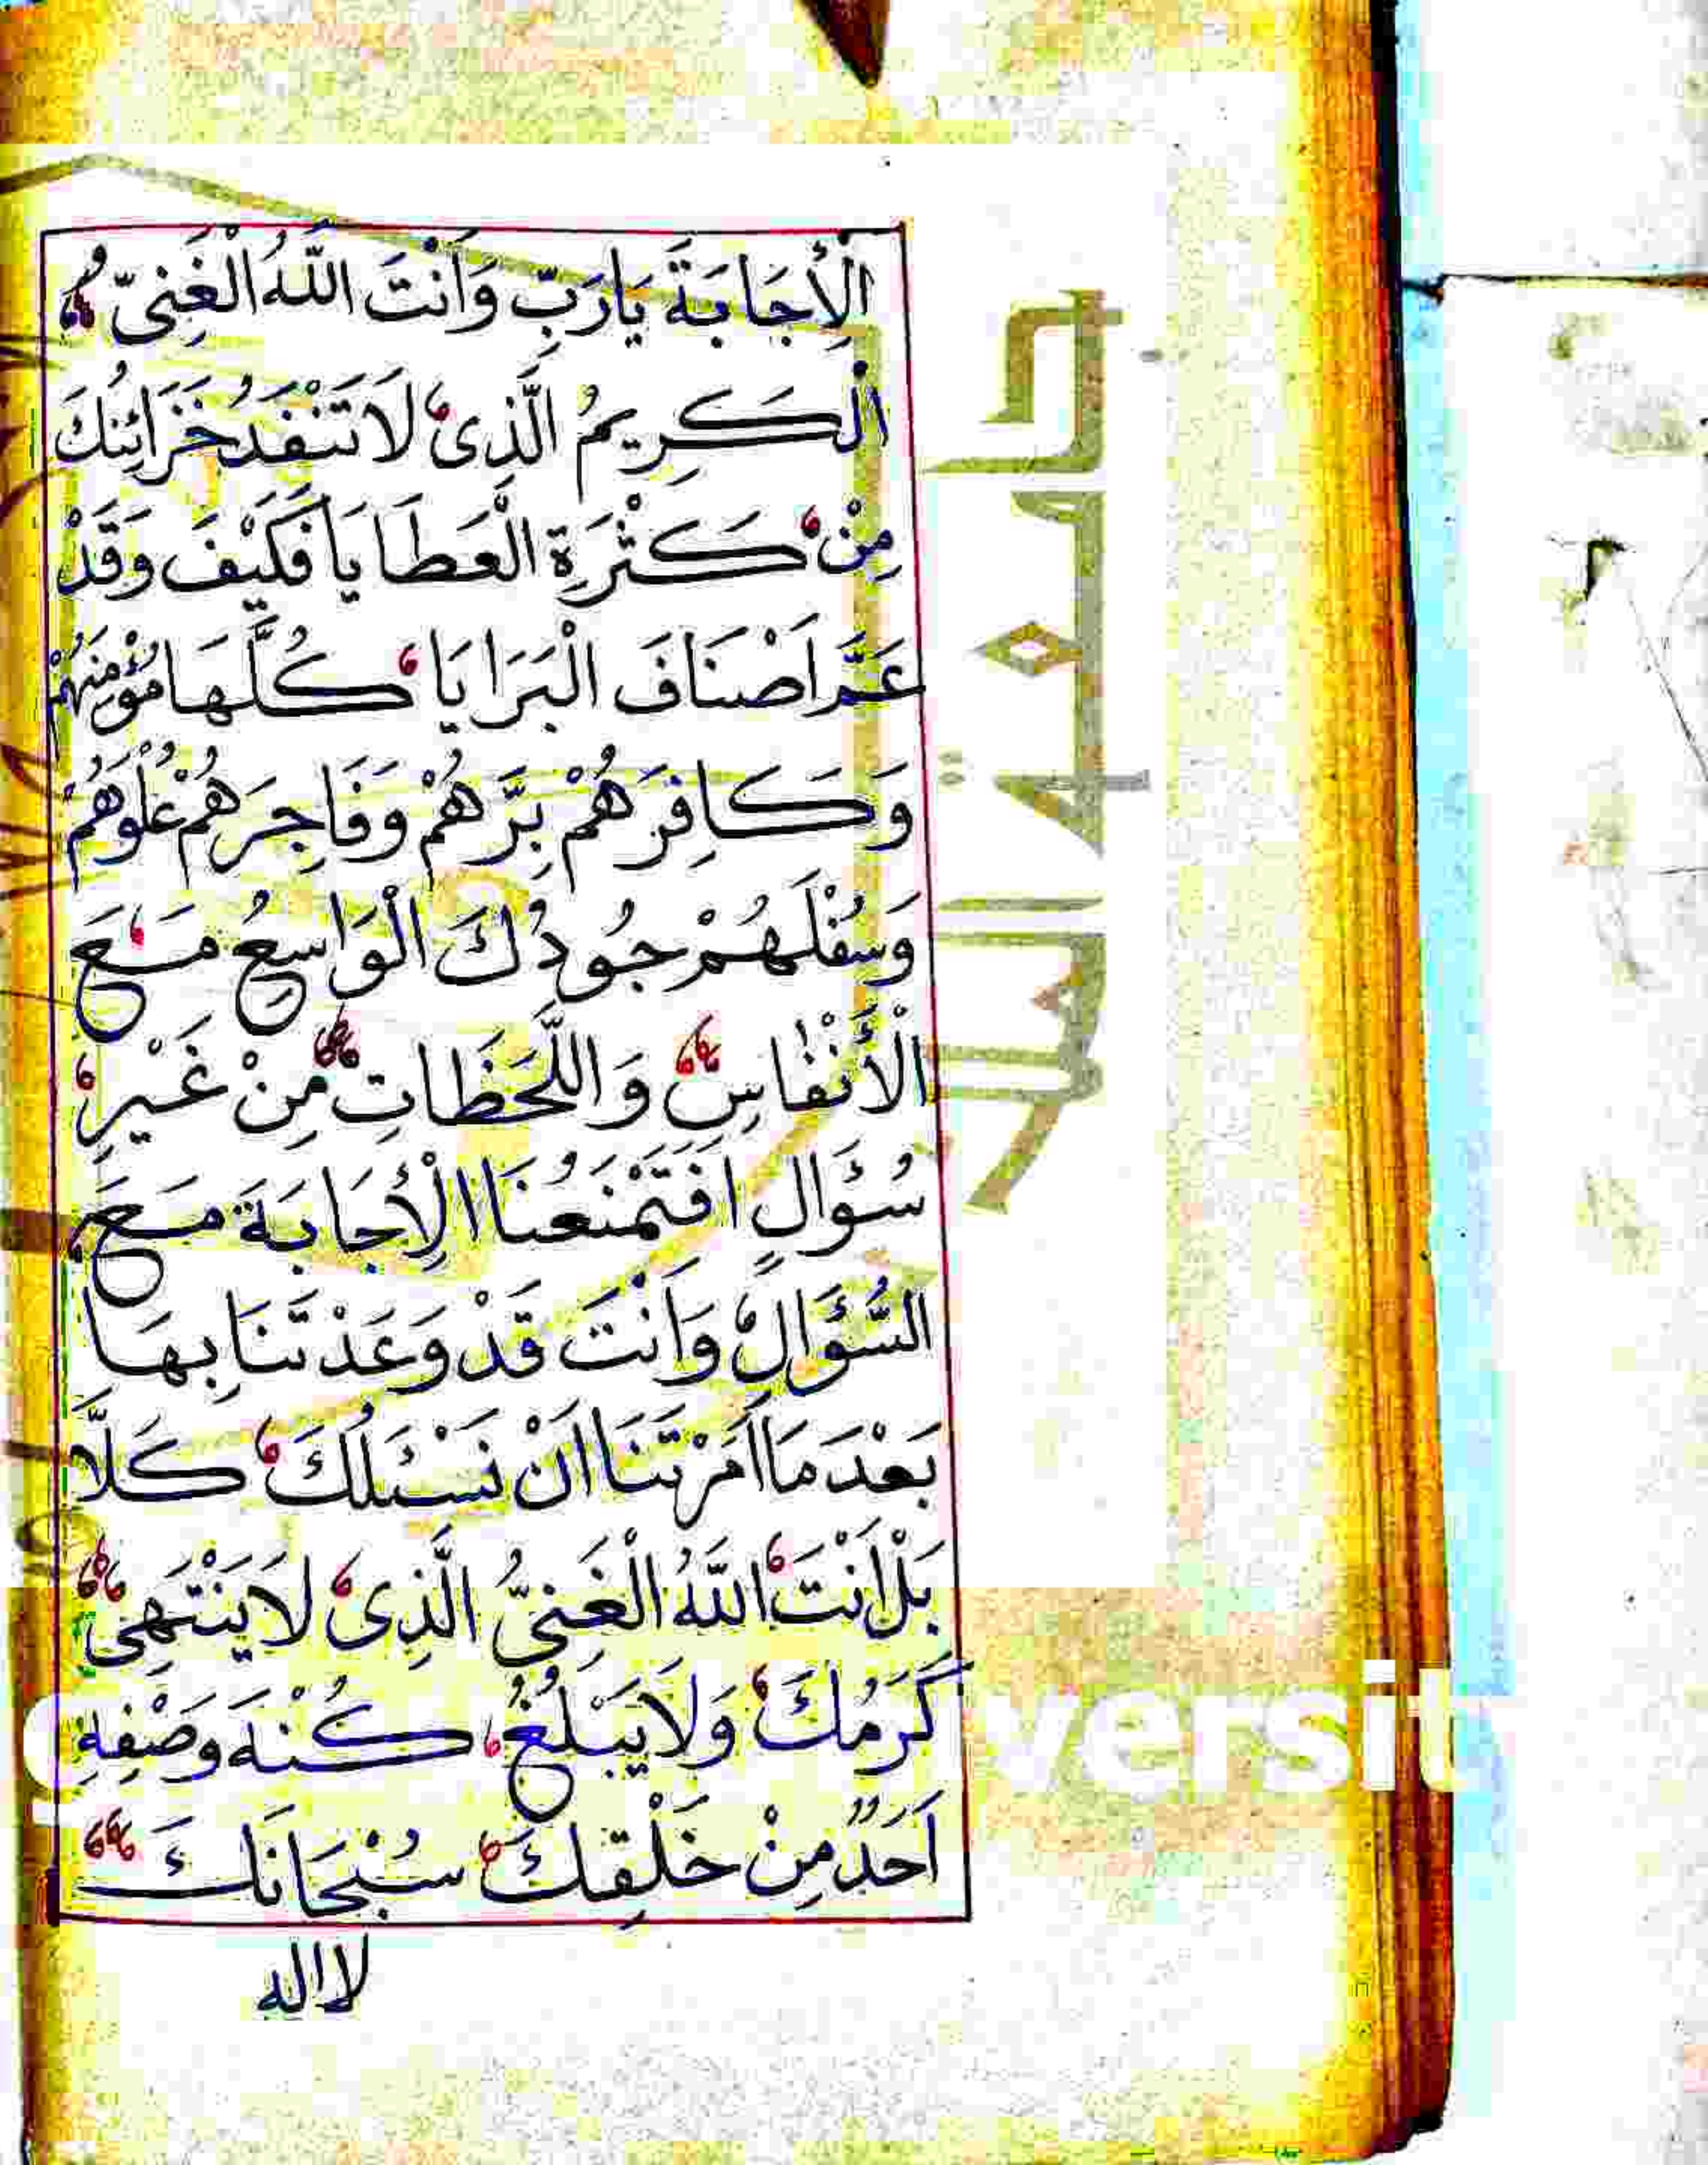 الْاِجَابَةَ يَارَبِّ وَاَنْتَ اللّٰهُ الْغَنِىُّ
الْكَرِيمُ الَّذِى لَا تَنْفَدُ خَزَائِنُكَ
مِنْ كَثْرَةِ الْعَطَايَا فَكَيْفَ وَقَدْ
عَمَّ اَصْنَافَ الْبَرَايَا كُلَّهَا مُؤْمِنِهُمْ
وَكَافِرَهُمْ بِرَّهُمْ وَفَاجِرَهُمْ عُلْوَهُمْ
وَسُفْلَهُمْ جُودُكَ الْوَاسِعُ مَعَ
الْأَنْفَاسِ وَاللَّحَظَاتِ مِنْ غَيْرِ
سُؤَالٍ اَفَتَمْنَعُنَا الْاِجَابَةَ مَعَ
السُّؤَالِ وَاَنْتَ قَدْ وَعَدْتَنَا بِهَا
بَعْدَ مَا اَمَرْتَنَا اَنْ نَسْئَلُكَ كَلَّا
بَلْ اَنْتَ اللّٰهُ الْغَنِىُّ الَّذِى لَا يَنْتَهِى
كَرَمُكَ وَلَا يَبْلُغُ كُنْهَ وَصْفِهِ
اَحَدٌ مِنْ خَلْقِكَ سُبْحَانَكَ
لا اله
جامعة الملك
versit